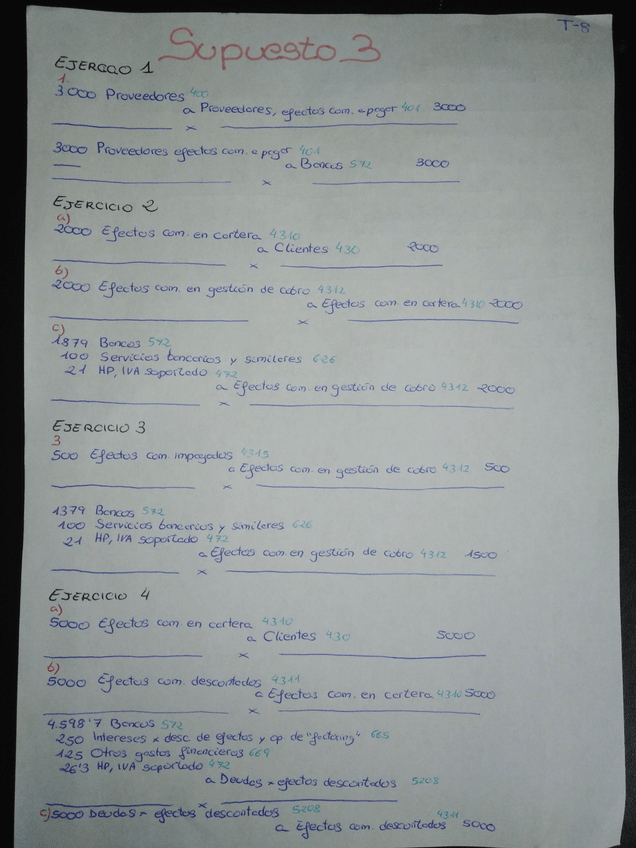 T-8
Supuesto 3
EJERCICIO 1
1.
3000 Proveedores 400
a Proveedores, efectos com. a pagar 401 3000
x
3000 Proveedores efectos com. a pagar 401
a Bancos 572 3000
x
EJERCICIO 2
a)
2000 Efectos com. en cartera 4310
a Clientes 430 2000
x
b)
2000 Efectos com. en gestión de cobro 4312
a Efectos com. en cartera 4310 2000
x
c)
1879 Bancos 572
100 Servicios bancarios y similares 626
21 HP, IVA soportado 472
a Efectos com. en gestión de cobro 4312 2000
x
EJERCICIO 3
3
500 Efectos com. impagados 4315
a Efectos com. en gestión de cobro 4312 500
x
1379 Bancos 572
100 Servicios bancarios y similares 626
21 HP, IVA soportado 472
a Efectos com. en gestión de cobro 4312 1500
x
EJERCICIO 4
a)
5000 Efectos com. en cartera 4310
a Clientes 430 5000
x
b)
5000 Efectos com. descontados 4311
a Efectos com. en cartera 4310 5000
x
4.598'7 Bancos 572
250 Intereses x desc. de efectos y op de "factoring" 665
125 Otros gastos financieros 669
26'3 HP, IVA soportado 472
a Deudas x efectos descontados 5208
x
c) 5000 Deudas x efectos descontados 5208
a Efectos com. descontados 4311 5000